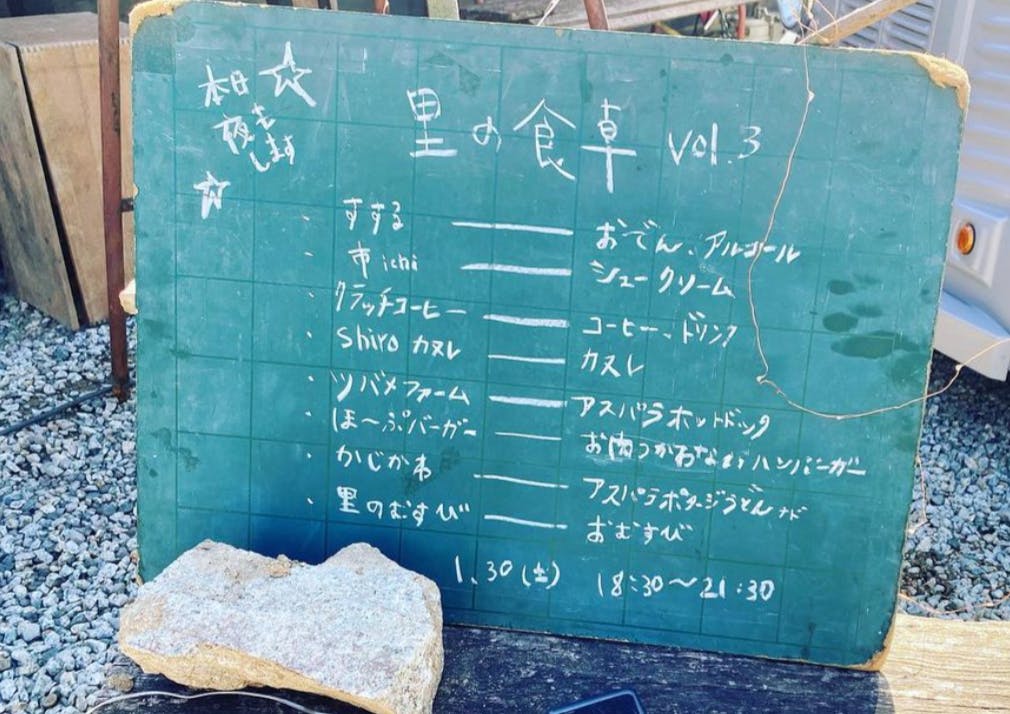 本日
夜も
します
里の食卓 vol.3
・ すする ― おでん、アルコール
・ 市ichi ― シュークリーム
・ クラッチコーヒー ― コーヒー、ドリンク
・ shiro カヌレ ― カヌレ
・ ツバメファーム ― アスパラホットドック
・ ほ〜ぷバーガー ― お肉つかわないハンバーガー
・ かじかわ ― アスパラポタージうどんナド
・ 里のむすび ― おむすび
1.30(土) 18:30〜21:30